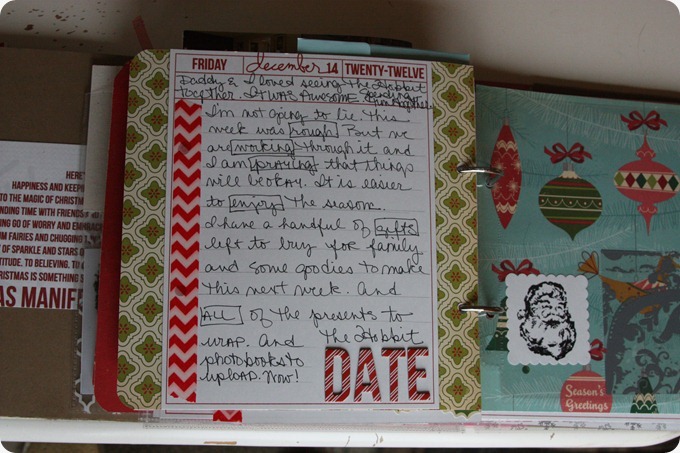 HERE'
HAPPINESS AND KEEPIN
TO THE MAGIC OF CHRISTMA
NDING TIME WITH FRIENDS
NG GO OF WORRY AND EMBRAC
UM FAIRIES AND CHUGGING
OF SPARKLE AND STARS
TITUDE. TO BELIEVING. TO
HRISTMAS IS SOMETHING
AS MANIFE
FRIDAY december 14 TWENTY-TWELVE
Daddy & I loved seeing The Hobbit
together. It WAS AWESOME spending
time together.
I'm not going to lie. This
week was rough. But we
are working through it and
I am praying that things
will be okay. It is easier
to enjoy the season.
I have a handful of gifts
left to buy for family
and some goodies to make
this next week. And
ALL of the presents to
wrap. And The Hobbit
photobooks to
upload. Now!
DATE
Season's
Greetings